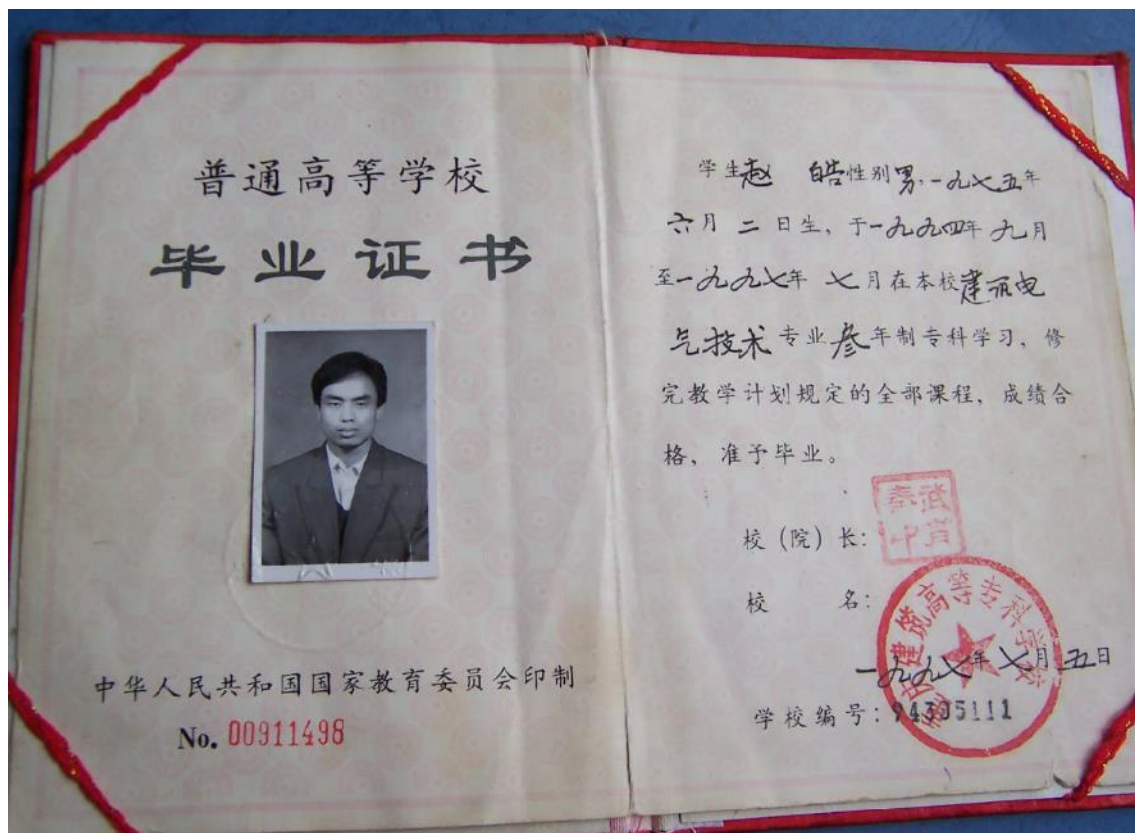 普通高等学校
毕业证书
中华人民共和国国家教育委员会印制
No. 00911498
学生赵 皓性别男,一九七五年
六月 二 日生, 于一九九四年 九月
至一九九七年 七月在本校建筑电
气技术专业叁年制专科学习, 修
完教学计划规定的全部课程, 成绩合
格, 准予毕业。
校(院)长:
校 名:
建筑高等专科学校
一九九七年七月五日
学校编号: 94305111